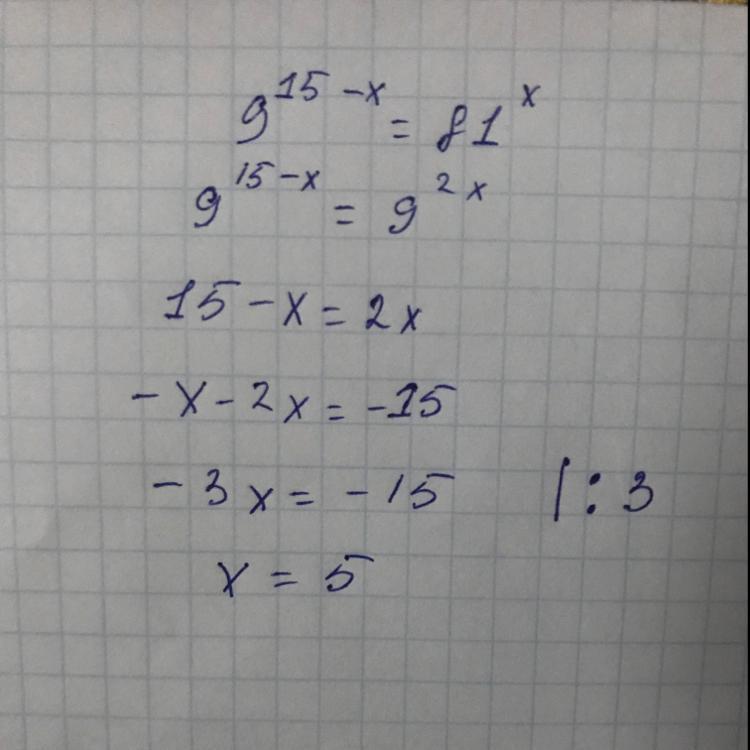 9^{15-x} = 81^x
9^{15-x} = 9^{2x}
15 - x = 2x
-x - 2x = -15
-3x = -15 | : 3
x = 5